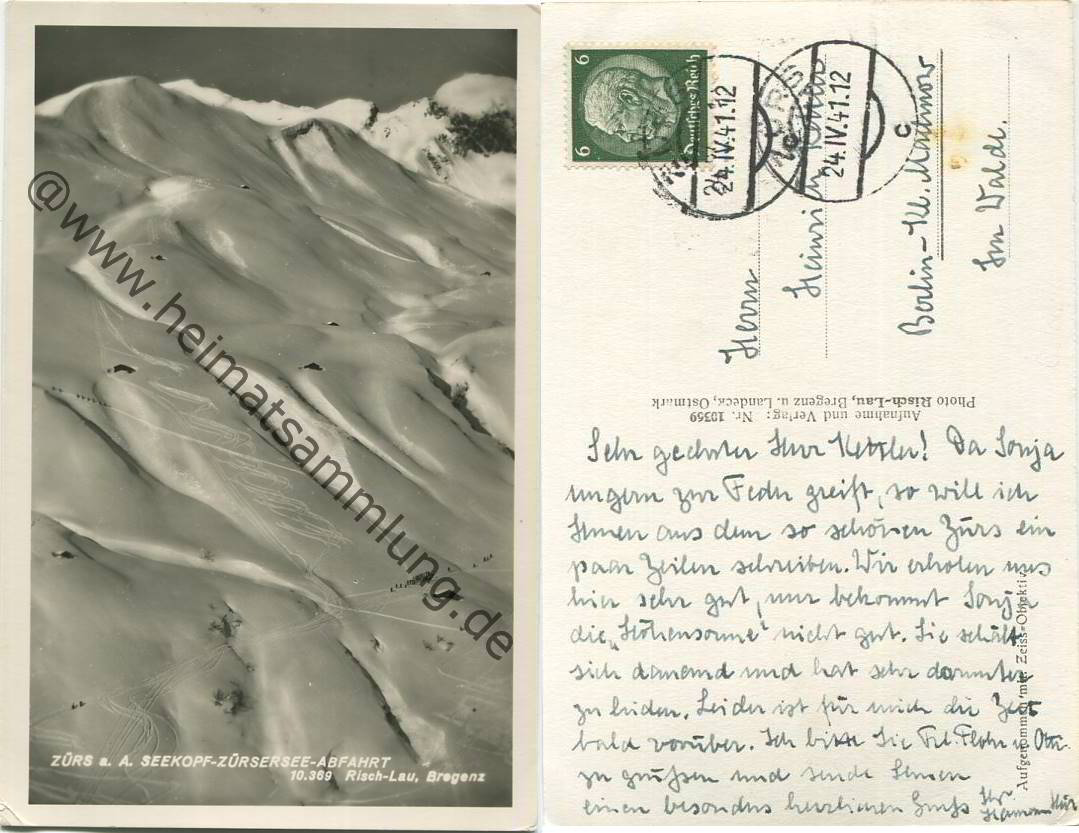 ZÜRS a. A. SEEKOPF-ZÜRSERSEE-ABFAHRT
10.369 Risch-Lau, Bregenz
@www.heimatsammlung.de
6 6
Deutsches Reich
24.IV.41.12
ZÜRS
24.IV.41.12
c
Herrn
Heinrich
Berlin-Kl. Machnow
Im Walde.
Aufnahme und Verlag: Nr. 10369
Photo Risch-Lau, Bregenz u. Landeck, Ostmark
Aufgenommen mit Zeiss-Objektiv
Sehr geehrter Herr Kettler! Da Sonja
ungern zur Feder greift, so will ich
Ihnen aus dem so schönen Zürs ein
paar Zeilen schreiben. Wir erholen uns
hier sehr gut, nur bekommt Sonja
die „Höhensonne" nicht gut. Sie schält
sich dauernd und hat sehr darunter
zu leiden. Leider ist für mich die Zeit
bald vorüber. Ich bitte Sie Frl. Flohr u. Otto
zu grüßen und sende Ihnen
einen besonders herzlichen Gruß Ihr
Hermann